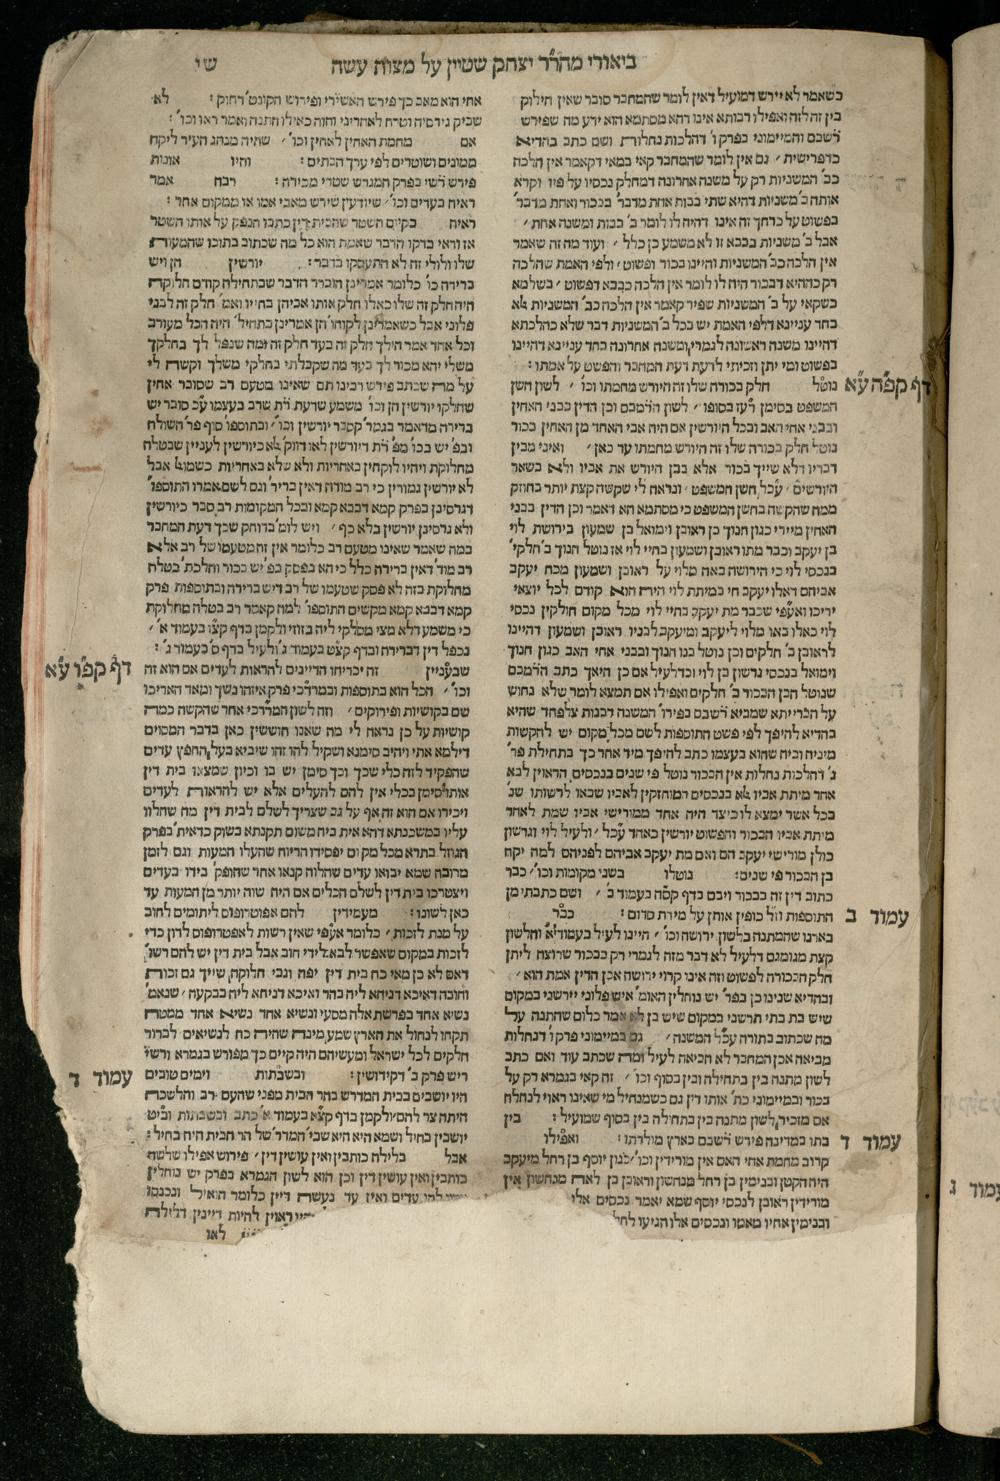 ביאורי מהר״ר יצחק שטיין על מצות עשה
שי
כשאמר לא יירש דמועיל דאין לומר שהמחבר סובר שאין חילוק
בין זה לזה ואפילו רבותא אינו דהא מסתמא הוא ידע מה שפירש
רשבם והמיימוני בפרק ו׳ דהלכות נחלות ושם כתב בהדיא
כדפרישית׳ גם אין לומר שהמחבר קאי במאי דקאמר אין הלכה
כב׳ המשניות רק על משנה אחרונה דמחלק נכסיו על פיו וקרא
אותה ב׳ משניות דהיא שתי בבות אחת מדבר׳ בבכור ואחת מדבר׳
בפשוט על כרחך זה אינו דהיה לו לומר ב׳ בבות ומשנה אחת׳
אבל ב׳ משניות בבבא זו לא משמע כן כלל׳ ועוד מה זה שאמר
אין הלכה כב׳ המשניות והיינו בכור ופשוט׳ ולפי האמת שהלכה
רק כההיא דבכור היה לו לומר אין הלכה כבבא דפשוט׳ בשלמא
כשקאי על ב׳ המשניות שפיר קאמר אין הלכה כב׳ המשניות לא
בחד עניינא דלפי האמת יש בכל ב׳ המשניות דבר שלא כהלכתא
דהיינו משנה ראשונה לגמרי ומשנה אחרונה בחד עניינא דהיינו
בפשוט ומי יתן וזכיתי לדעת דעת המחבר והפשט על אמתו :
דף קפ״ה ע״א
נוטל חלק בכורה שלו זה היורש מחמתו וכו׳ לשון חשן
המשפט בסימן רעז בסופו׳ לשון הרמבם וכן הדין בבני האחין
ובבני אחי האב ובכל היורשין אם היה אבי האחד מן האחין בכור
נוטל חלק בכורה שלו זה היורש מחמתו עד כאן׳ ואיני מבין
דבריו דלא שייך בכור אלא בבן היורש את אביו ולא בשאר
היורשים׳ עכל חשן המשפט׳ ונראה לי שקשה קצת יותר בחוזק
ממה שהקשה בחשן המשפט כי מסתמא הא דאמר וכן הדין בבני
האחין מיירי כגון חנוך בן ראובן וימואל בן שמעון בירושת לוי
בן יעקב וכבר מתו ראובן ושמעון בחיי לוי אז נוטל חנוך ב׳ חלקי׳
בנכסי לוי כי הירושה באה מלוי על ראובן ושמעון מכח יעקב
אביהם דאלו יעקב חי במיתת לוי היה הוא קודם לכל יוצאי
יריכו ואעפי שכבר מת יעקב בחיי לוי מכל מקום חולקין נכסי
לוי כאלו באו מלוי ליעקב ומיעקב לבניו ראובן ושמעון דהיינו
לראובן ב׳ חלקים וכן נוטל בנו חנוך ובבני אחי האב כגון חנוך
וימואל בנכסי גרשון בן לוי וכדלעיל אם כן היאך כתב הרמבם
שנוטל הבן הבכור ב׳ חלקים ואפילו אם תמצא לומר שלא נחוש
על הברייתא שמביא רשבם בפירו׳ המשנה דבנות צלפחד שהיא
בהדיא להיפך לפי פשט התוספות לשם מכל מקום יש להקשות
מיניה וביה שהוא בעצמו כתב להיפך מיד אחר כך בתחילת פר׳
ג׳ דהלכות נחלות אין הבכור נוטל פי שנים בנכסים הראוין לבא
אחר מיתת אביו לא בנכסים המוחזקין לאביו שבאו לרשותו שנ׳
בכל אשר ימצא לו כיצד היה אחד ממורישי אביו שמת לאחר
מיתת אביו הבכור והפשוט יורשין כאחד עכל׳ ולעיל לוי וגרשון
כולן מורישי יעקב הם ואם מת יעקב אביהם לפניהם למה יקח
בן הבכור פי שנים : נוטלו בשני מקומות וכו׳ כבר
כתוב דין זה בבכור ויבם בדף קסה בעמוד ב׳ ושם כתבתי מן
עמוד ב
התוספות וזל כופין אותן על מידת סדום : כבר
בארנו שהמתנה בלשון ירושה וכו׳ היינו לעיל בעמוד א׳ והלשון
קצת מגומגם דלעיל לא דבר מזה לגמרי רק בבכור שרוצה ליתן
חלק הבכורה לפשוט וזה אינו קרוי ירושה אכן הדין אמת הוא׳
ובהדיא שנינו כן בפר׳ יש נוחלין האומ׳ איש פלוני יירשני במקום
שיש בת בתי תרשני במקום שיש בן לא אמר כלום שהתנה על
מה שכתוב בתורה עכל המשנה׳ גם במיימוני פרק ו׳ דנחלות
מביאה אכן המחבר לא הביאה לעיל ומה שכתב עוד ואם כתב
לשון מתנה בין בתחילה ובין בסוף וכו׳ זה קאי בגמרא רק על
בכור ובמיימוני כת׳ אותו דין גם כשמנחיל מי שאינו ראוי לנחלה
אם מזכיר לשון מתנה בין בתחילה בין בסוף שמועיל : בין
עמוד ד
בתו במדינה פירש רשבם בארץ מולדתו : ואפילו
קרוב מחמת אחי האם אין מורידין וכו׳ כגון יוסף בן רחל מיעקב
היה הקטן ובנימין בן רחל מנחשון וראובן בן לאה מנחשון אין
מורידין ראובן לנכסי יוסף שמא יאמר נכסים אלו
ובנימין אחיו מאמו ונכסים אלו הגיעו לחל
אחי הוא מאב כך פירש האשירי ופירוש הקונט׳ רחוק : לא
שביק נידסיה וטרח לאחריני והוה כאילו התנה ואמר ראו וכו׳ :
אם מחמת האחין לאחין וכו׳ שהיה מנהג העיר ליקח
ממונים ושוטרים לפי ערך הבתים : והיו אונות
פירש רשי בפרק המגרש שטרי מכירה : רבח אמר
ראיה בעדים וכו׳ שיודעין שירש מאבי אמו או ממקום אחר :
ראיה בקיום השטר שהבית דין כתבו הנפק על אותו השטר
אז וראי בדקו הדבר שאמת הוא כל מה שכתוב בתוכו שהמעות
שלו ולולי זה לא התעסקו בדבר : יורשין הן ויש
ברירה כו׳ כלומר אמרינן הוברר הדבר שבתחילה קודם חלוקה
היה חלק זה שלו כאלו חלק אותו אביהן בחייו ואמ׳ חלק זה לבני
פלוני אבל כשאמרינן לקוחו׳ הן אמרינן בתחיל׳ היה הכל מעורב
וכל אחד אמר הילך חלק זה בעד חלק זה ומה שנפל לך בחלקך
משלי יהא מכור לך בעד מה שקבלתי בחלקי משלך וקשה לי
על מה שכתב פירש רבינו תם שאינו מטעם רב שסובר אחין
שחלקו יורשין הן וכו׳ משמע שדעת רת שרב בעצמו עכ סובר יש
ברירה מדאמר בגמר׳ קסבר יורשין וכו׳ ובתוספו׳ סוף פר׳ השולח
ובפ׳ יש בכו׳ מפ׳ רת דיורשין לאו דווק׳ לא כיורשין לעניין שבטלה
מחלוקת ויהיו לוקחין באחריות ולא שלא באחריות כשמוא׳ אבל
לא יורשין גמורין כי רב מודה דאין בריר׳ וגם לשם אמרו התוספו׳
דגרסינן בפרק קמא דבבא קמא ובכל המקומות רב סבר כיורשין
ולא גרסינן יורשין בלא כף׳ ויש לומ׳ בדוחק שכך דעת המחבר
במה שאמר שאינו מטעם רב כלומר אין זה מטעמו של רב אלא
רב מוד׳ דאין ברירה כלל כי הא בפסק בפ׳ יש בכור והלכת׳ בטלה
מחלוקת בזה לא פסק שטעמו של רב דיש ברירה ובתוספות פרק
קמא דבבא קמא מקשים התוספו׳ למה קאמר רב בטלה מחלוקת
כי משמע דלא מצי מסלקי ליה בזוזי ולקמן בדף קצו בעמוד א׳
נכפל דין דברירה ובדף קצט בעמוד ג׳ ולעיל בדף ס׳ בעמוד ג׳ :
דף קפ״ו ע״א
שבעניין זה יכריחו הדיינים להראות לעדים אם הוא זה
וכו׳ הכל הוא בתוספות ובמרדכי פרק איזהו נשך ומאד האריכו
שם בקושיות ופירוקים׳ וזה לשון המרדכי אחר שהקשה כמה
קושיות על כן נראה לי מה שאנו חוששין כאן בדבר המסוים
דילמא אתי ויהיב סימנא ושקיל להו זהו שיביא בעל החפץ עדים
שהפקיד לזה כלי שכך וכך סימן יש בו וכיון שמצאו בית דין
אותו סימן בכלי אין להם להעלים אלא יש להראות לעדים
ויכירו אם הוא זה אף על גב שצריך לשלם לבית דין מה שהלוו
עליו במשכנתא דהא אית ביה משום תקנתא בשוק כדאית׳ בפרק
הגוזל בתרא מכל מקום יפסידו הריוח שהעלו המעות וגם לזמן
מרובה שמא יבואו עדים שהלוה קנאו אחר שהופק׳ בידו בעדים
ויצטרכו בית דין לשלם הכלים אם היה שוה יותר מן המעות עד
כאן לשונו : מעמידין להם אפוטרופוס ליתומים לחוב
על מנת לזכות׳ כלומר אעפי שאין רשות לאפטרופוס לדון כדי
לזכות במקום שאפשר לבא לידי חוב אבל בית דין יש להם רשו׳
דאם לא כן מאי כח בית דין יפה וגבי חלוקה שייך גם זכות
וחובה דאיכא דניחא ליה בהר ואיכא דניחא ליה בבקעה׳ שנאמ׳
נשיא אחד בפרשת אלה מסעי ונשיא אחד נשיא אחד ממטה
תקחו לנחול את הארץ שמע מינה שהיה כח לנשיאים לברור
חלקים לכל ישראל ומעשיהם היה קיים כך מפורש בגמרא ורשי
עמוד ד
ריש פרק ב׳ דקידושין : ובשבתות וימים טובים
היו יושבים בבית המדרש בהר הבית מפני שהעם רב והלשכה
היתה צר להם ולקמן בדף קצא בעמוד א׳ כתב ובשבתות וביט
יושבין בחיל ושמא היא היא שבי׳ המדר׳ של הר הבית היה בחיל :
אבל בלילה כותבין ואין עושין דין׳ פירוש אפילו שלשה
כותבין ואין עושין דין וכן הוא לשון הגמרא בפרק יש נוחלין
עדים ואיך עד נעשה דיין כלומר הואיל ונכנסו
ראוין להיות דיינין דלילה
לאו
עמוד ג